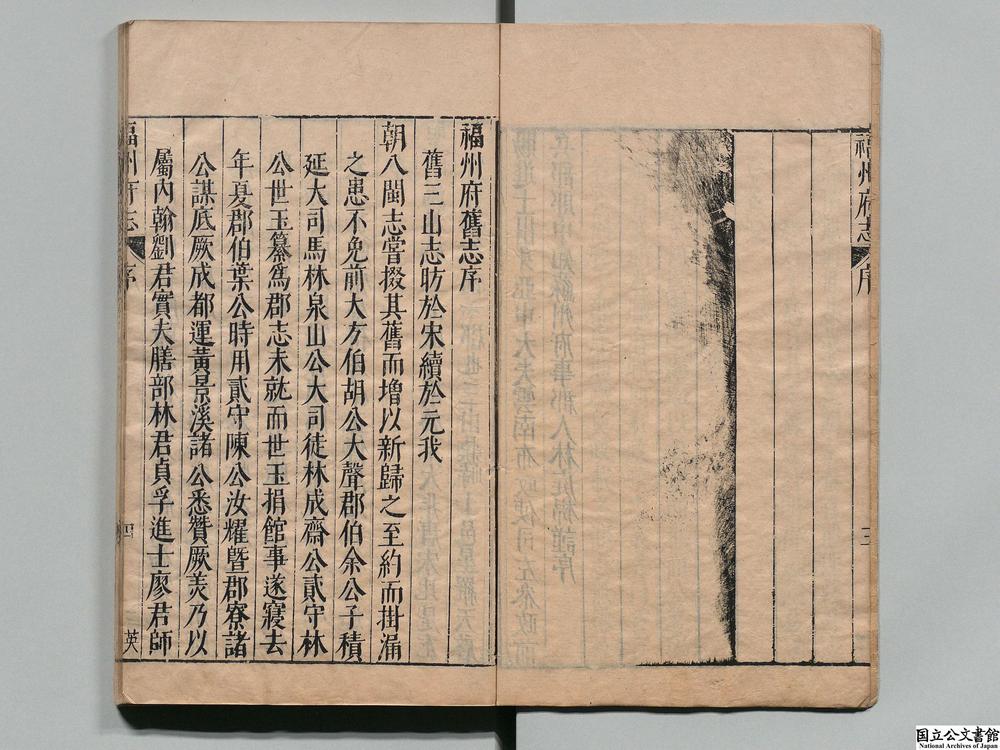 福州府志 序
三
福州府舊志序
舊三山志昉於宋續於元我
朝八閩志嘗掇其舊而增以新歸之至約而掛漏
之患不免前大方伯胡公大聲郡伯余公子積
延大司馬林泉山公大司徒林成齋公貳守林
公世玉纂爲郡志未就而世玉捐館事遂寢去
年夏郡伯葉公時用貳守陳公汝耀曁郡寮諸
公謀底厥成都運黃景溪諸公悉贊厥羙乃以
屬内翰劉君實夫膳部林君貞孚進士廖君師
福州府志 序
四
英
国立公文書館
National Archives of Japan